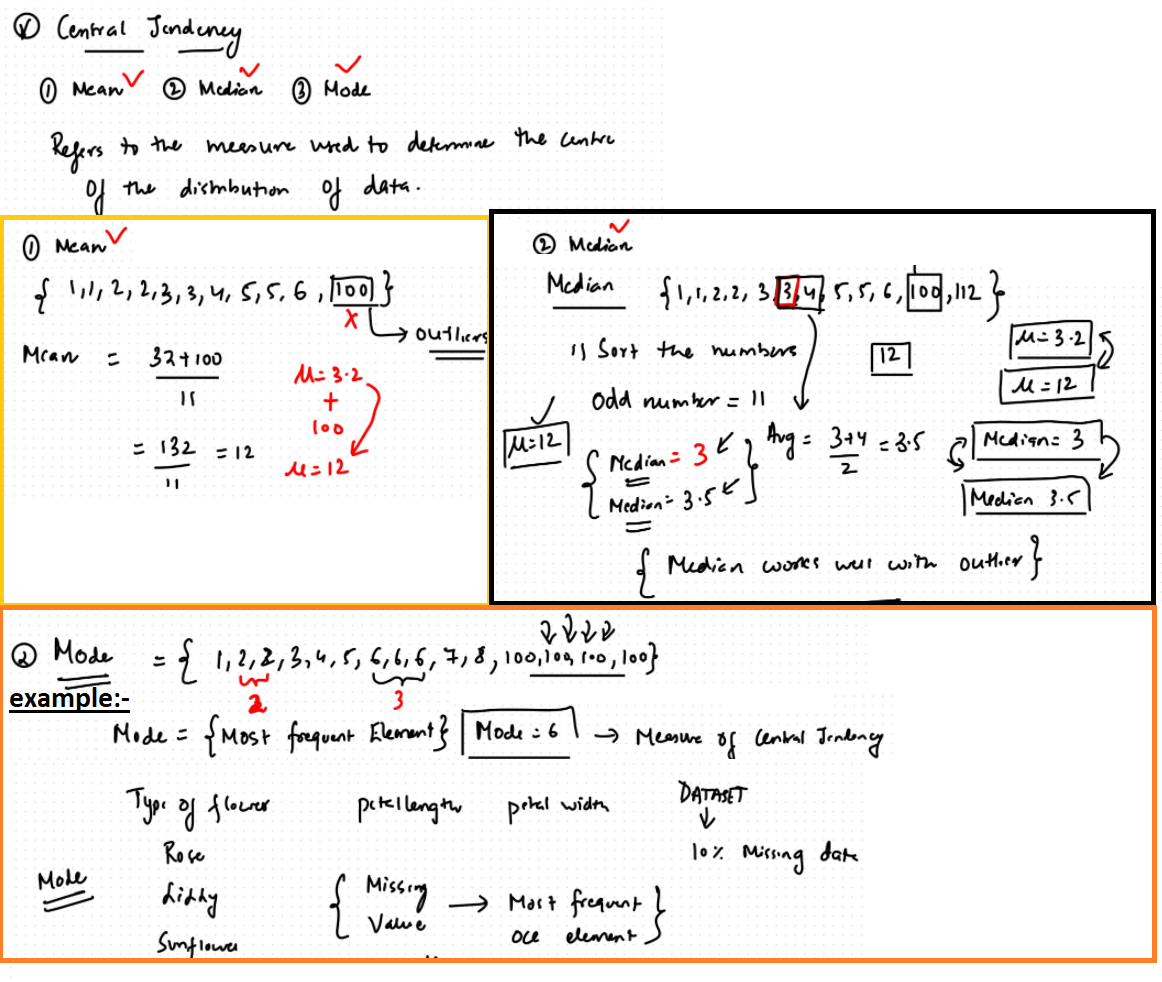 Central Tendency
① Mean ② Median ③ Mode
Refers to the measure used to determine the centre
of the distribution of data.
① Mean
{ 1,1, 2, 2, 3, 3, 4, 5, 5, 6, 100 }
x
→ outliers
Mean = 32+100
11
= 132 = 12
11
μ= 3.2
+
100
μ = 12
② Median
Median {1, 1, 2, 2, 3, 3, 4, 5, 5, 6, 100, 112 }
Sort the numbers
12
μ= 3.2
μ = 12
Odd number = 11
μ=12
{ Median = 3 }
{ Median = 3.5 }
Avg = 3+4 = 3.5
2
Median = 3
Median 3.5
{ Median works well with outlier }
② Mode = { 1, 2, 2, 3, 4, 5, 6, 6, 6, 7, 8, 100, 100, 100, 100}
2 3
example:-
Mode = {Most frequent Element} Mode = 6 → Measure of Central Tendency
Type of flower petal length petal width DATASET
↓
Rose 10% Missing data
Mode
Lilly
Sunflower
{ Missing → Most frequent }
{ Value element }